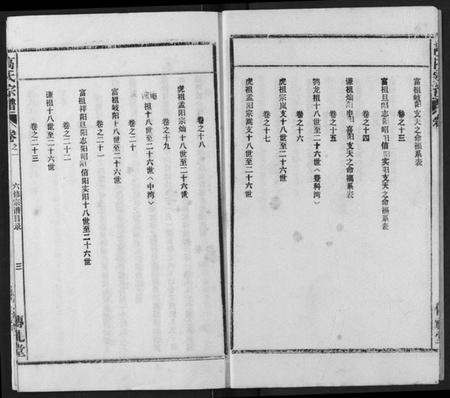 富祖岐阳支天之命禍系表
卷之十三
富祖旦阳志阳昭阳信阳实阳支天之命禍系表
卷之十四
谦祖灿阳电阳喜阳支天之命禍系表
卷之十五
鸦龙祖十八世至二十六世（登科湾）
卷之十六
虎祖宗岚支十八世至二十六世
卷之十七
虎祖孟阳宗萬支十八世至二十六世
卷之十八
虎祖孟阳宗灿十八世至二十六世
卷之十九
祖十八世至二十六世（中湾）
卷之二十
富祖岐阳十八世至二十六世
卷之二十一
富祖祥阳旦阳志阳昭阳信阳实阳十八世至二十六世
卷之二十二
谦祖十八世至二十六世
卷之二十三
高氏宗譜
卷之
六修宗谱目录
三